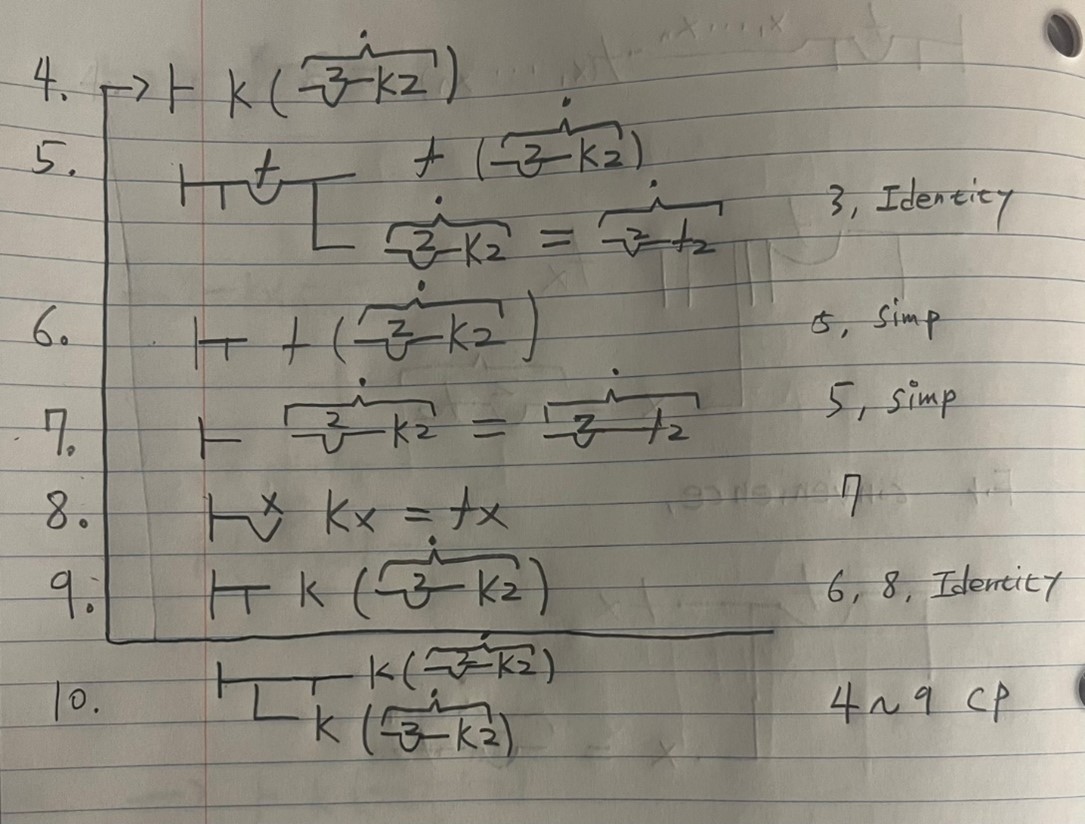 4. → ⊢ k(–z–kz)
5. ⊢ t t(–z–kz)
–z–kz = –z–tz 3, Identity
6. ⊢ t(–z–kz) 5, Simp
7. ⊢ –z–kz = –z–tz 5, Simp
8. ⊢ x kx = tx 7
9. ⊢ k(–z–kz) 6, 8, Identity
10. ⊢ k(–z–kz)
k(–z–kz) 4~9 CP